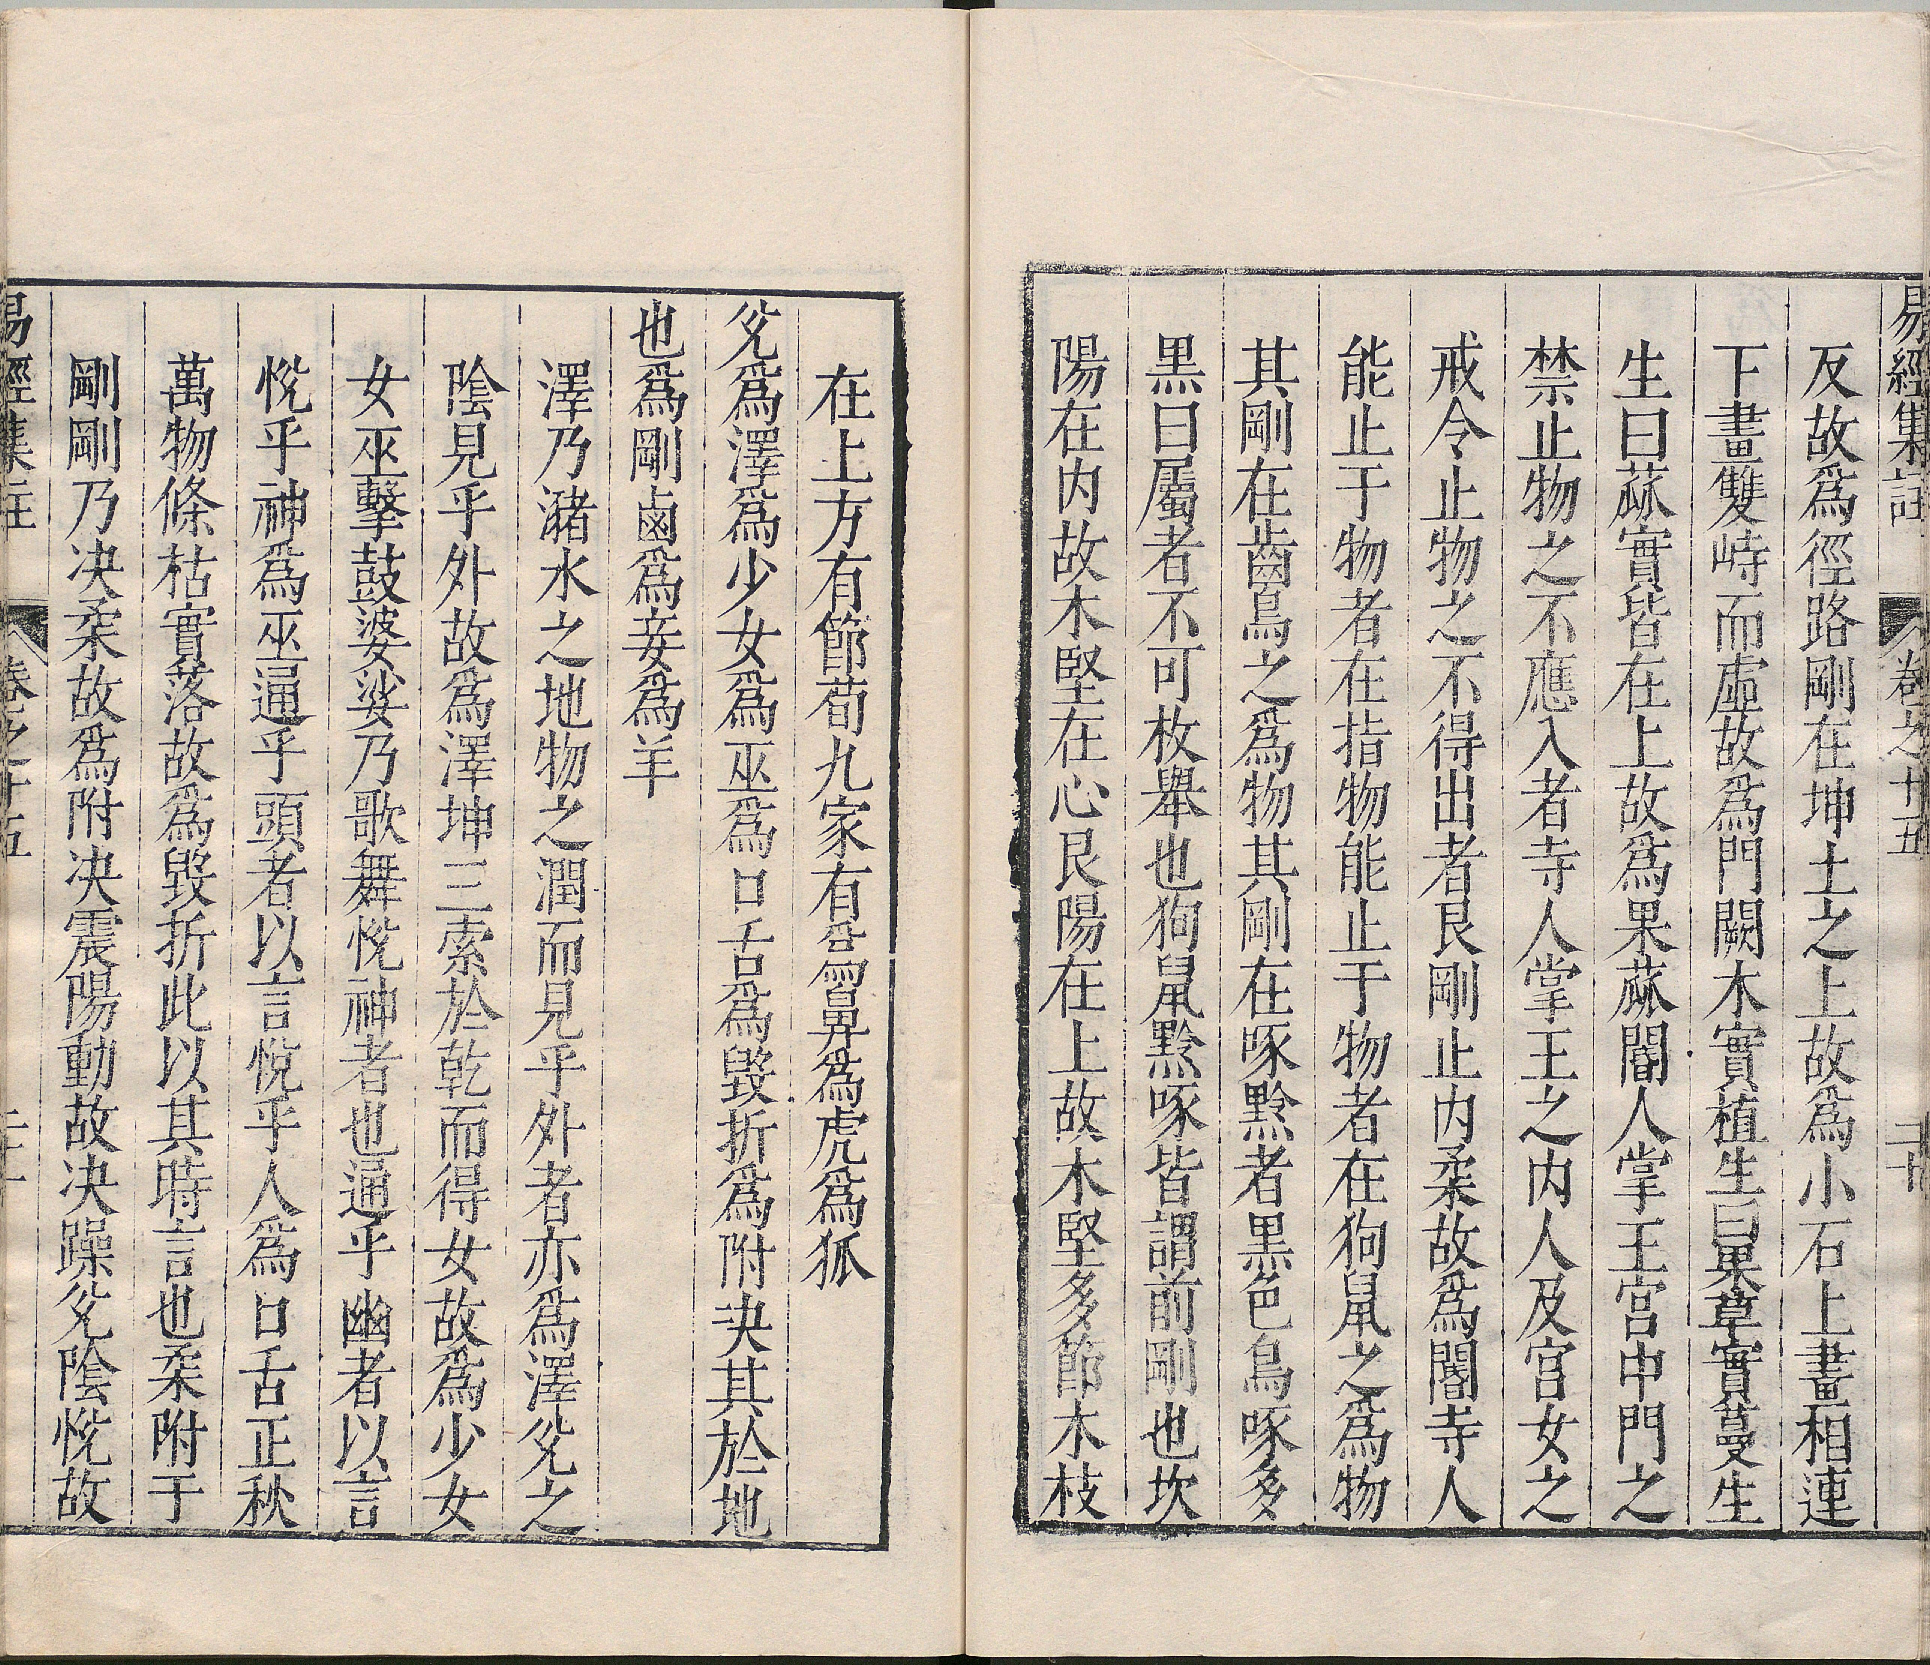 易經集註 卷之十五 二十
反故爲徑路剛在坤土之上故爲小石上畫相連
下畫雙峙而虛故爲門闕木實植生曰果草實蔓生
生曰蓏實皆在上故爲果蓏閽人掌王宮中門之
禁止物之不應入者寺人掌王之内人及宮女之
戒令止物之不得出者艮剛止内柔故爲閽寺人
能止于物者在指物能止于物者在狗鼠之爲物
其剛在齒鳥之爲物其剛在啄黔者黑色鳥啄多
黑曰屬者不可枚舉也狗鼠黔啄皆謂前剛也坎
陽在内故木堅在心艮陽在上故木堅多節木枝
在上方有節荀九家有爲鼻爲虎爲狐
兌爲澤爲少女爲巫爲口舌爲毀折爲附決其於地
也爲剛鹵爲妾爲羊
澤乃瀦水之地物之潤而見乎外者亦爲澤兌之
陰見乎外故爲澤坤三索於乾而得女故爲少女
女巫擊鼓婆娑乃歌舞悅神者也通乎幽者以言
悅乎神爲巫通乎頭者以言悅乎人爲口舌正秋
萬物條枯實落故爲毀折此以其時言也柔附于
剛剛乃決柔故爲附決震陽動故決躁兌陰悅故
易經集註 卷之十五